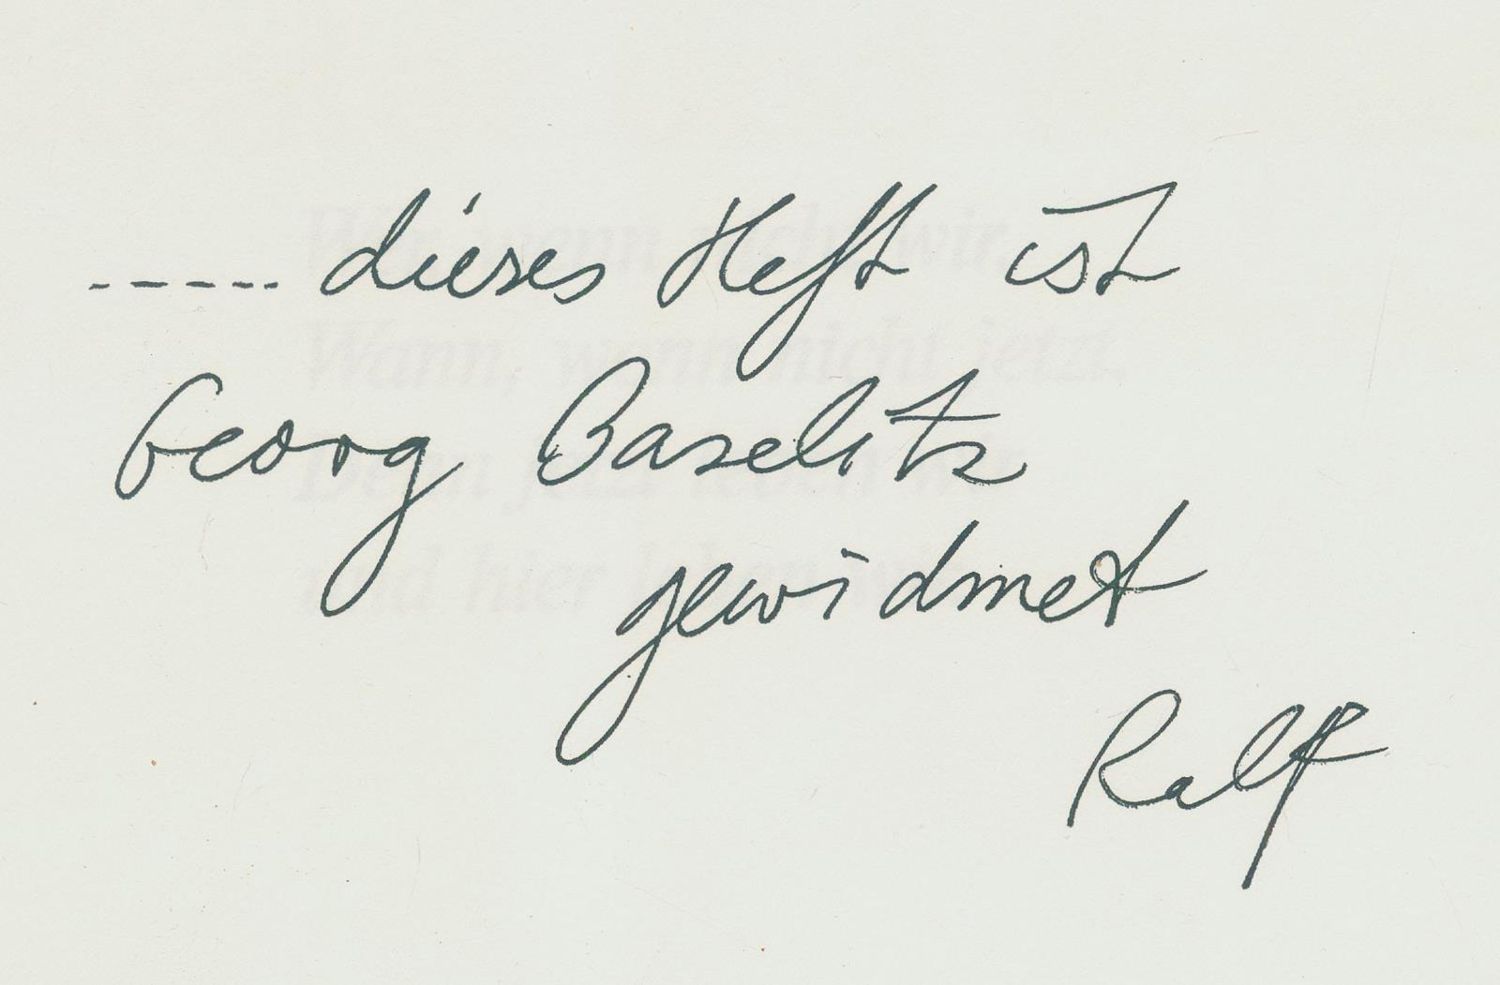 ----- dieses Heft ist
Georg Baselitz
gewidmet
Ralf